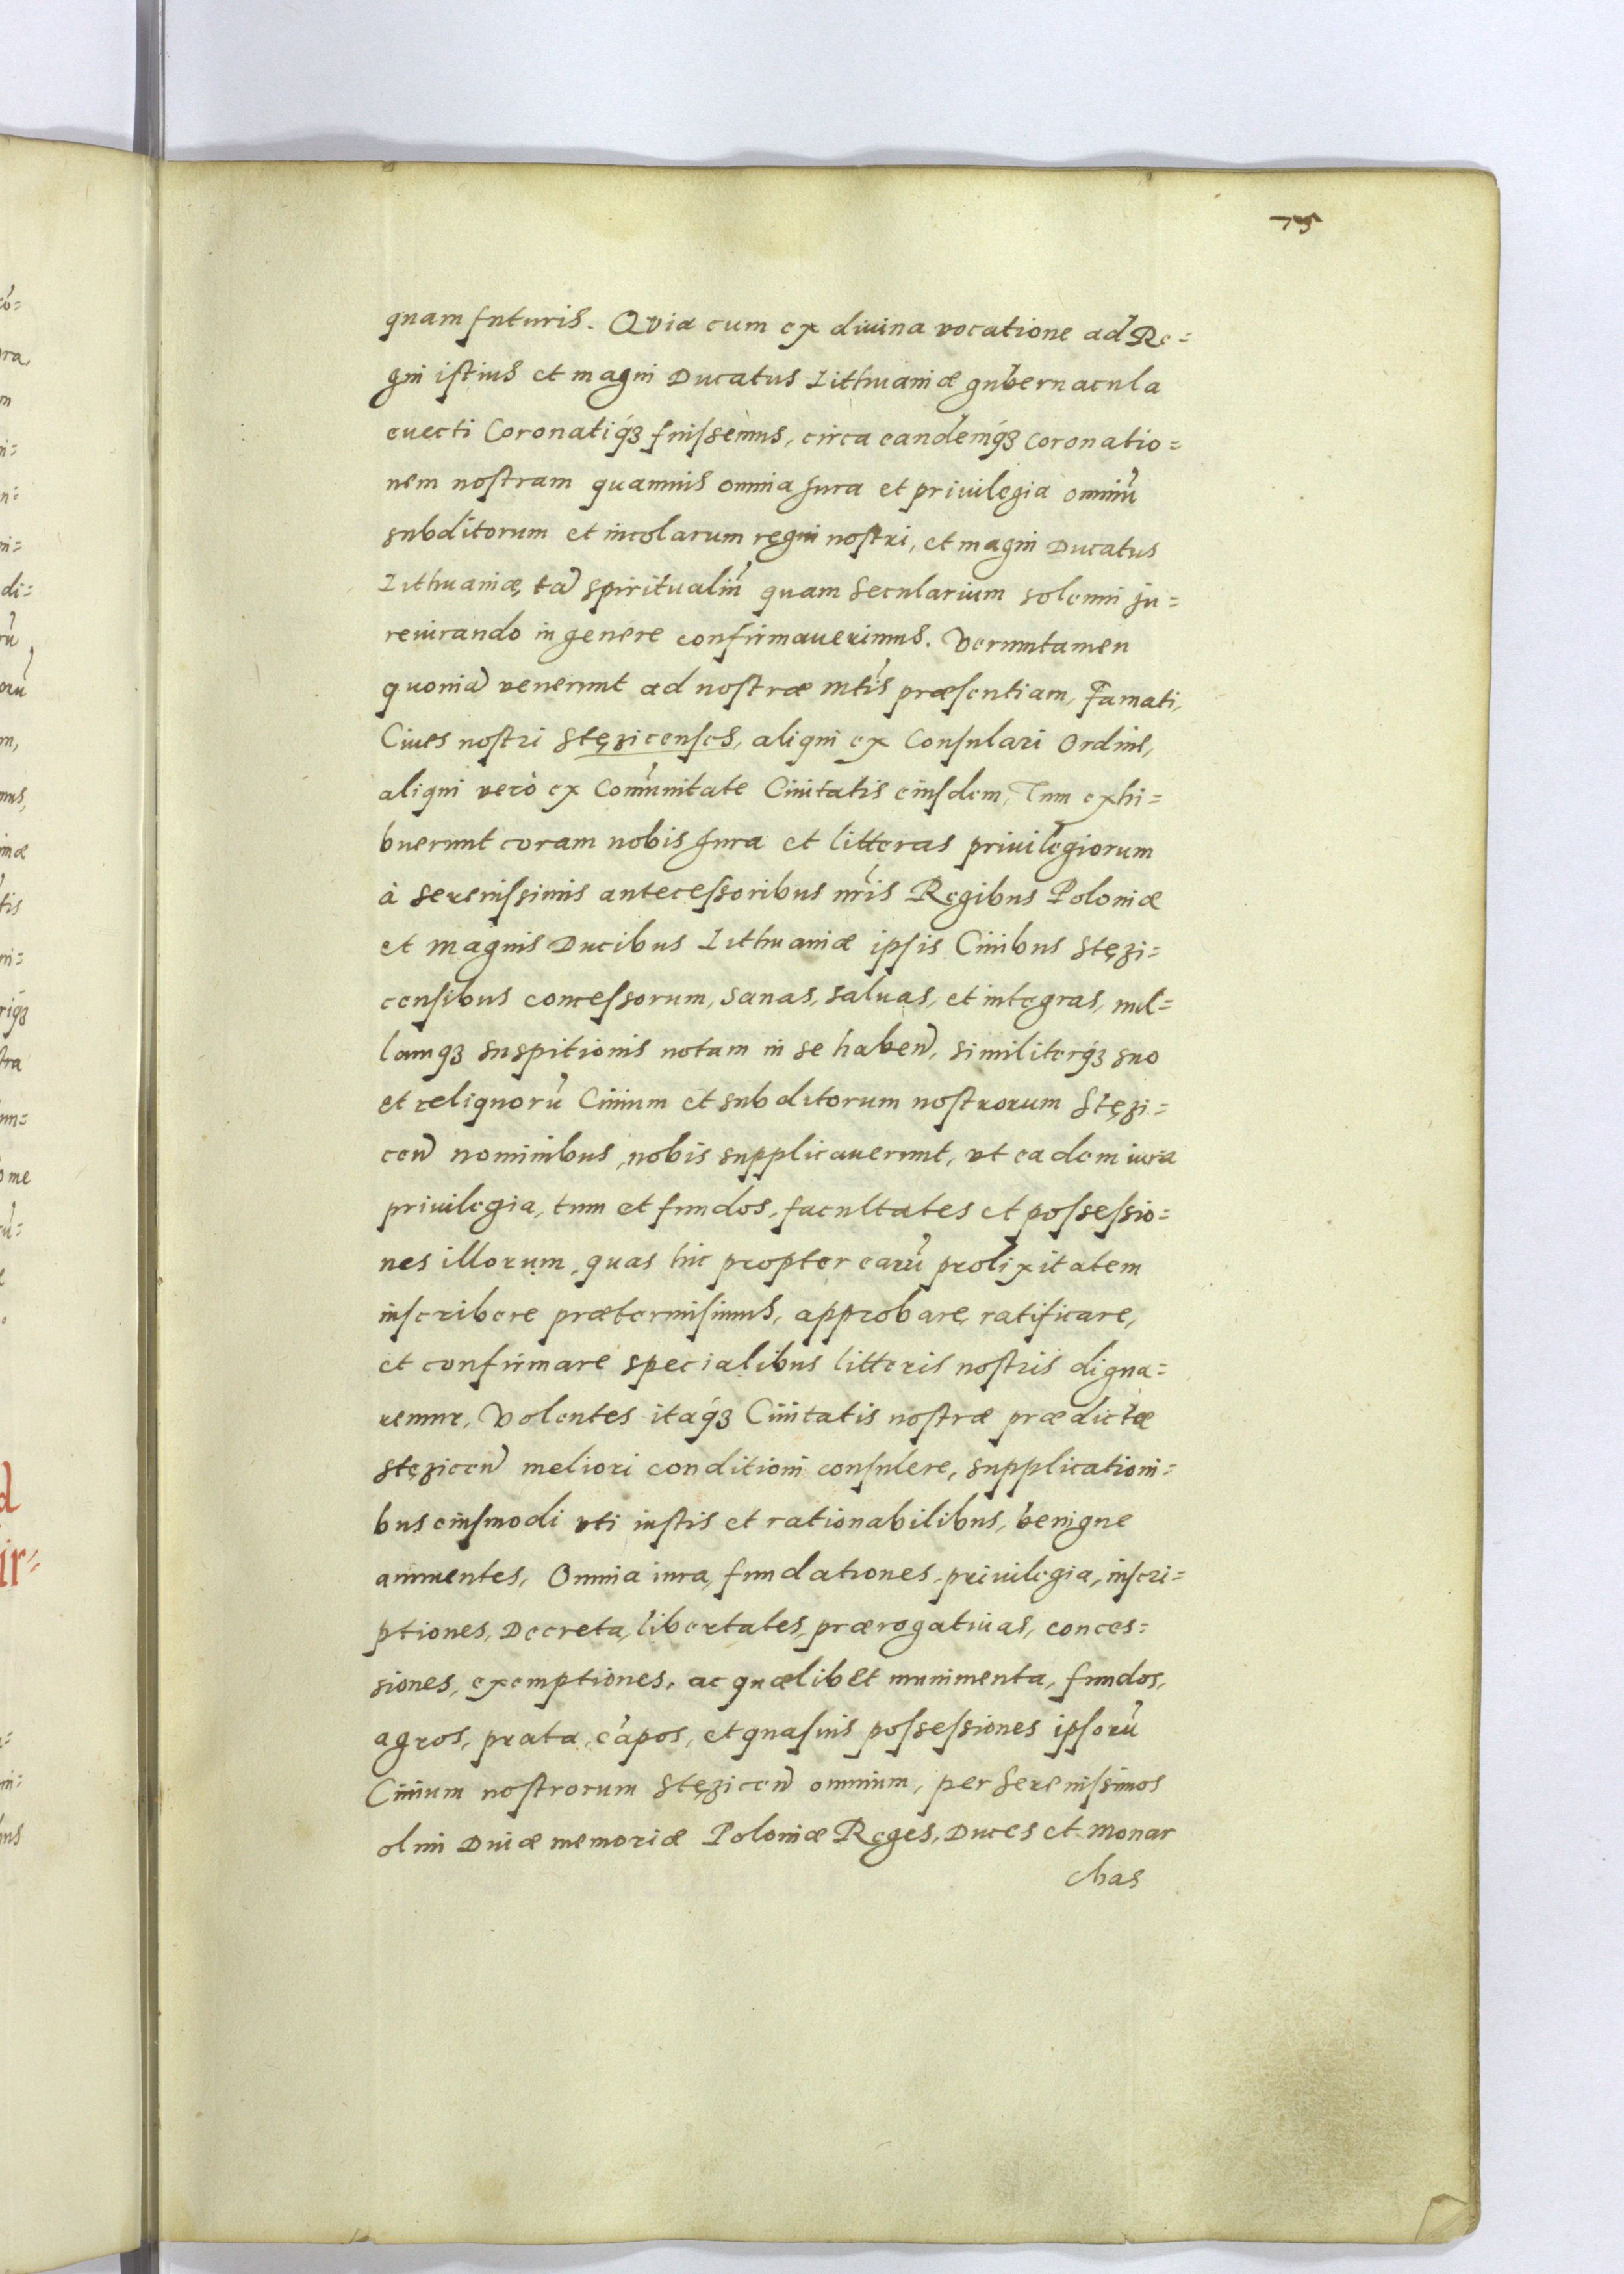 75
quam futuris. Qvia cum ex diuina vocatione ad Re=
gni istius et magni Ducatus Lithuaniæ gubernacula
euecti Coronatiq́ꝫ fuissemus, circa eandemq́ꝫ coronatio=
nem nostram quamuis omnia Jura et priuilegia omniũ
subditorum et incolarum regni nostri, et magni Ducatus
Lithuaniæ, tã spiritualiũ quam secularium solenni ju=
reiurando in genere confirmauerimus. Veruntamen
quoniã venerunt ad nostræ mtis præsentiam, Famati,
Ciues nostri Stęzicenses, aliqui ex Consulari Ordine,
aliqui verò ex Com̃unitate Ciuitatis eiusdem, Tum exhi=
buerunt coram nobis Jura et litteras priuilegiorum
à serenissimis antecessoribus nr̃is Regibus Poloniæ
et magnis Ducibus Lithuaniæ ipsis Ciuibus Stęzi=
censibus concessorum, sanas, saluas, et integras, nul=
lamqꝫ suspitionis notam in se habeñ, similiterq́ꝫ suo
et reliquorũ Ciuium et subditorum nostrorum Stęzi=
ceñ nominibus, nobis supplicauerunt, vt eadem iura
priuilegia, tum et fundos, facultates et possessio=
nes illorum, quas hic propter earũ prolixitatem
inscribere prætermisimus, approbare, ratificare,
et confirmare specialibus litteris nostris digna=
remur, Volentes itaq́ꝫ Ciuitatis nostræ prædictæ
Stęziceñ meliori conditioni consulere, supplicationi=
bus eiusmodi vti iustis et rationabilibus, benigne
annuentes, Omnia iura, fundationes, priuilegia, inscri=
ptiones, Decreta, libertates, prærogatiuas, conces=
siones, exemptiones, ac quælibet munimenta, fundos,
agros, prata, cãpos, et quasuis possessiones ipsorũ
Ciuium nostrorum Stęziceñ omnium, per Serenissimos
olim Diuæ memoriæ Poloniæ Reges, Duces et Monar
chas